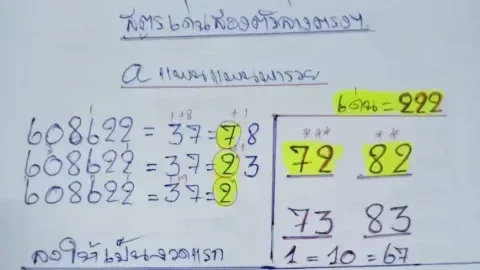 สูตรเด่นสองตัวล่างตรงๆ
a แพนแพนพารวย
เด่น = 222
1+8 +1
608622 = 37 = 78
608622 = 37 = 23
608622 = 37 = 2
72 82
73 83
1 = 10 = 67
ลงให้เป็นงวดแรก